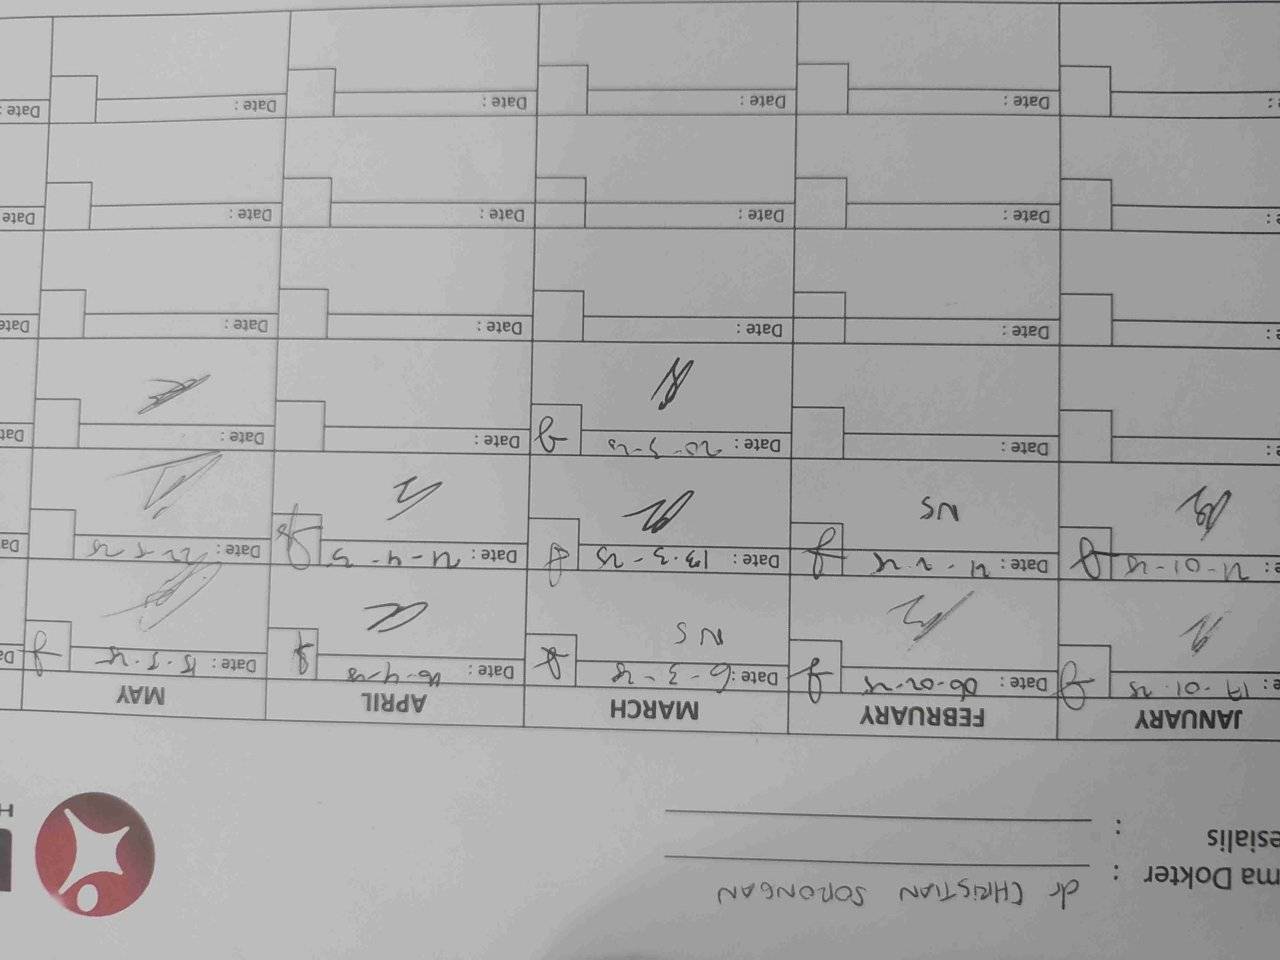 ma Dokter : dr CHRISTIAN SORONGAN
esialis :
H
JANUARY FEBRUARY MARCH APRIL MAY
e : 17-01-25 Date : 06-02-25 Date : 6-3-25 Date : 16-4-25 Date : 15-5-25 Da
NS
e : 21-01-25 Date : 21-2-25 Date : 13-3-25 Date : 21-4- Date : 22-5-25 Da
NS
e : Date : Date : 20-3-25 Date : Date : Dat
e : Date : Date : Date : Date : Date
e : Date : Date : Date : Date : Date
e : Date : Date : Date : Date : Date :